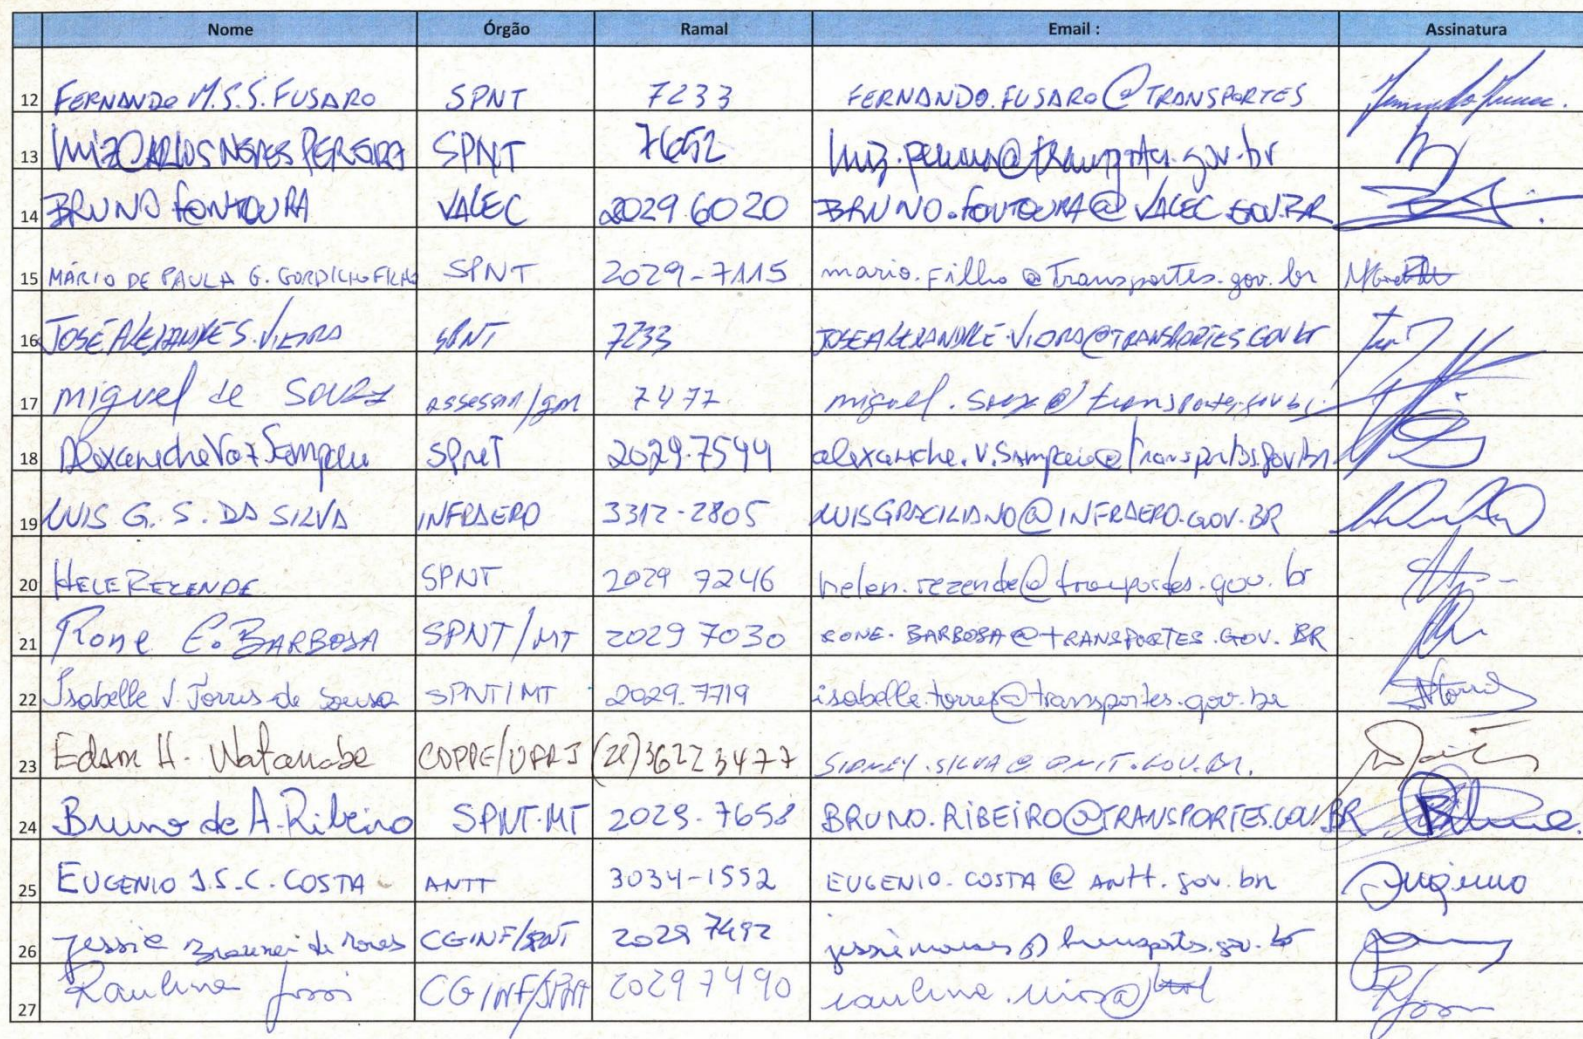 Nome Órgão Ramal Email : Assinatura
12 FERNANDO M.S.S. FUSARO SPNT 7233 FERNANDO.FUSARO@TRANSPORTES
13 LUIZ CARLOS NEVES PEREIRA SPNT 7652 luiz.pereira@transportes.gov.br
14 BRUNO FONTOURA VALEC 2029.6020 BRUNO.FONTOURA@VALEC.GOV.BR
15 MÁRIO DE PAULA G. GORDILHO FILHO SPNT 2029-7115 mario.filho@transportes.gov.br
16 JOSÉ ALEXANDRE S. VIEIRA SPNT 7233 JOSEALEXANDRE.VIEIRA@TRANSPORTES.GOV.BR
17 miguel de Souza assessor/gm 7477 miguel.souza@transportes.gov.br
18 Alexandre Vaz Sampaio SPNT 2029.7544 alexandre.v.sampaio@transportes.gov.br
19 LUIS G. S. DA SILVA INFRAERO 3312-2805 LUISGRACILIANO@INFRAERO.GOV.BR
20 HELE REZENDE SPNT 2029 7246 helen.rezende@transportes.gov.br
21 Rone E. BARBOSA SPNT/MT 2029 7030 RONE.BARBOSA@TRANSPORTES.GOV.BR
22 Isabelle V. Torres de Sousa SPNT/MT 2029.7719 isabelle.torres@transportes.gov.br
23 Edson H. Watanabe COPPE/UFRJ (21)36223477 SIDNEY.SILVA@DNIT.GOV.BR.
24 Bruno de A. Ribeiro SPNT-MT 2029-7658 BRUNO.RIBEIRO@TRANSPORTES.GOV.BR
25 EUGENIO J.S.C. COSTA ANTT 3034-1552 EUGENIO.COSTA@ANTT.gov.br Eugenio
26 Jessie de CGINF/SPNT 2029 7492
27 CGINF/SPNT 2029 7490